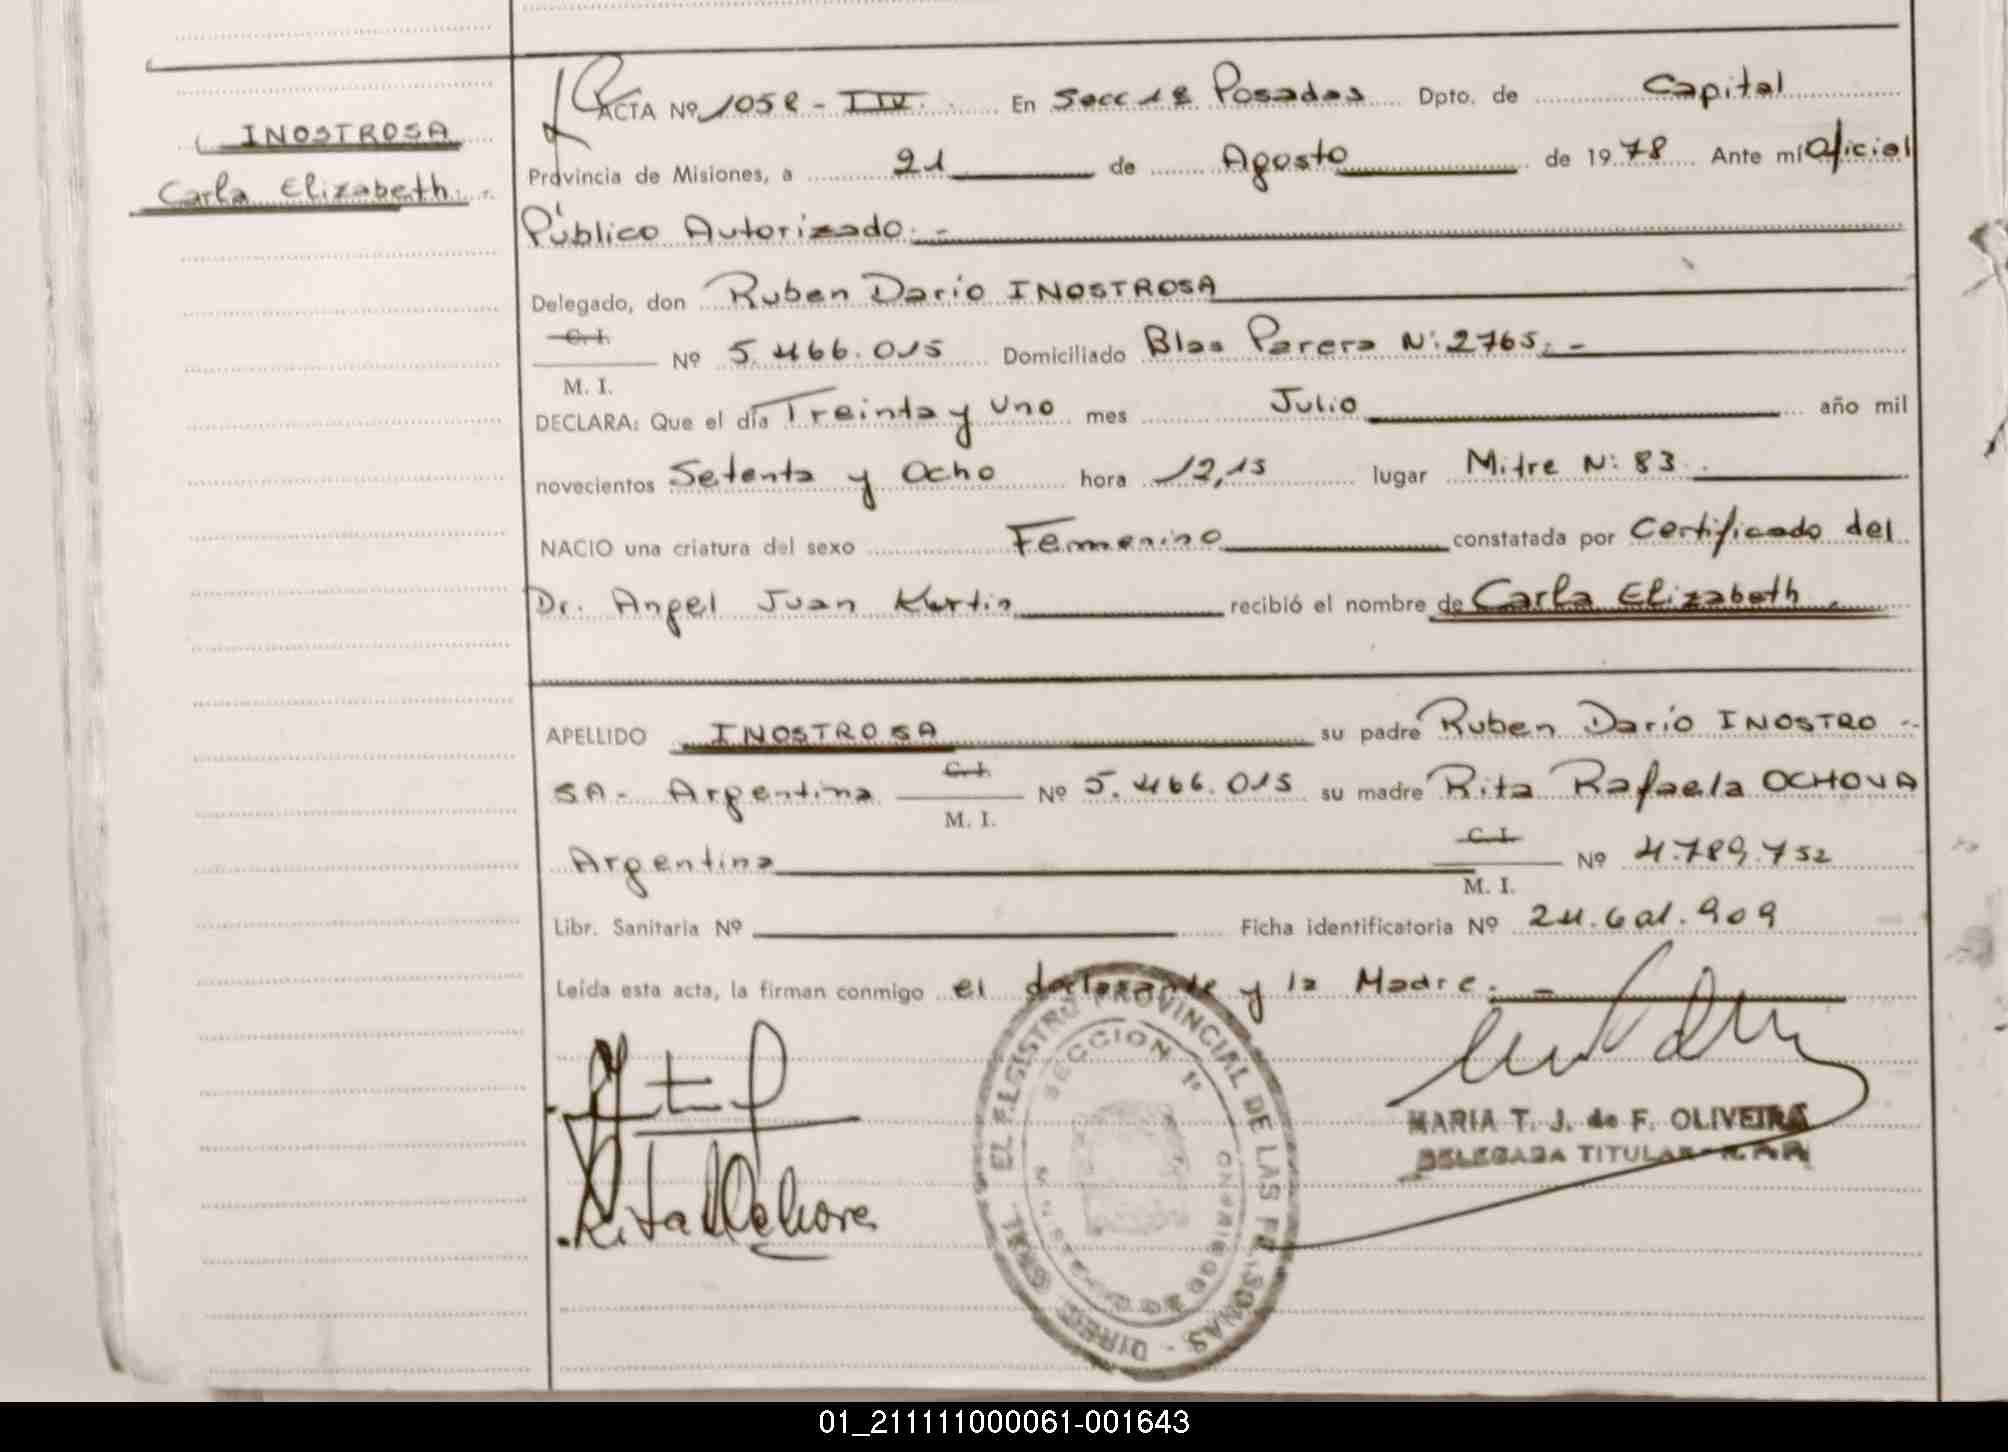 INOSTROSA
Carla Elizabeth.-
ACTA Nº 1058 - T IV. En Secc 1ª Posadas Dpto. de Capital
Provincia de Misiones, a 21 de Agosto de 1978 Ante mí Oficial
Público Autorizado.-
Delegado, don Ruben Dario INOSTROSA
C. I.
M. I. Nº 5.466.015 Domiciliado Blas Parera Nº 2765.-
DECLARA: Que el día Treinta y Uno mes Julio año mil
novecientos Setenta y Ocho hora 12,15 lugar Mitre Nº 83.
NACIO una criatura del sexo Femenino constatada por Certificado del
Dr. Angel Juan recibió el nombre de Carla Elizabeth.
APELLIDO INOSTROSA su padre Ruben Dario INOSTRO
SA- Argentina C. I. M. I. Nº 5.466.015 su madre Rita Rafaela OCHOVA
Argentina C. I. M. I. Nº 4.789.752
Libr. Sanitaria Nº Ficha identificatoria Nº 24.601.909
Leída esta acta, la firman conmigo el declarante y la Madre.-
DIREC. GRAL. EL REGISTRO PROVINCIAL DE LAS PERSONAS
SECCION 1º
POSADAS
MARIA T. J. de F. OLIVEIRA
DELEGADA TITULAR
01_211111000061-001643